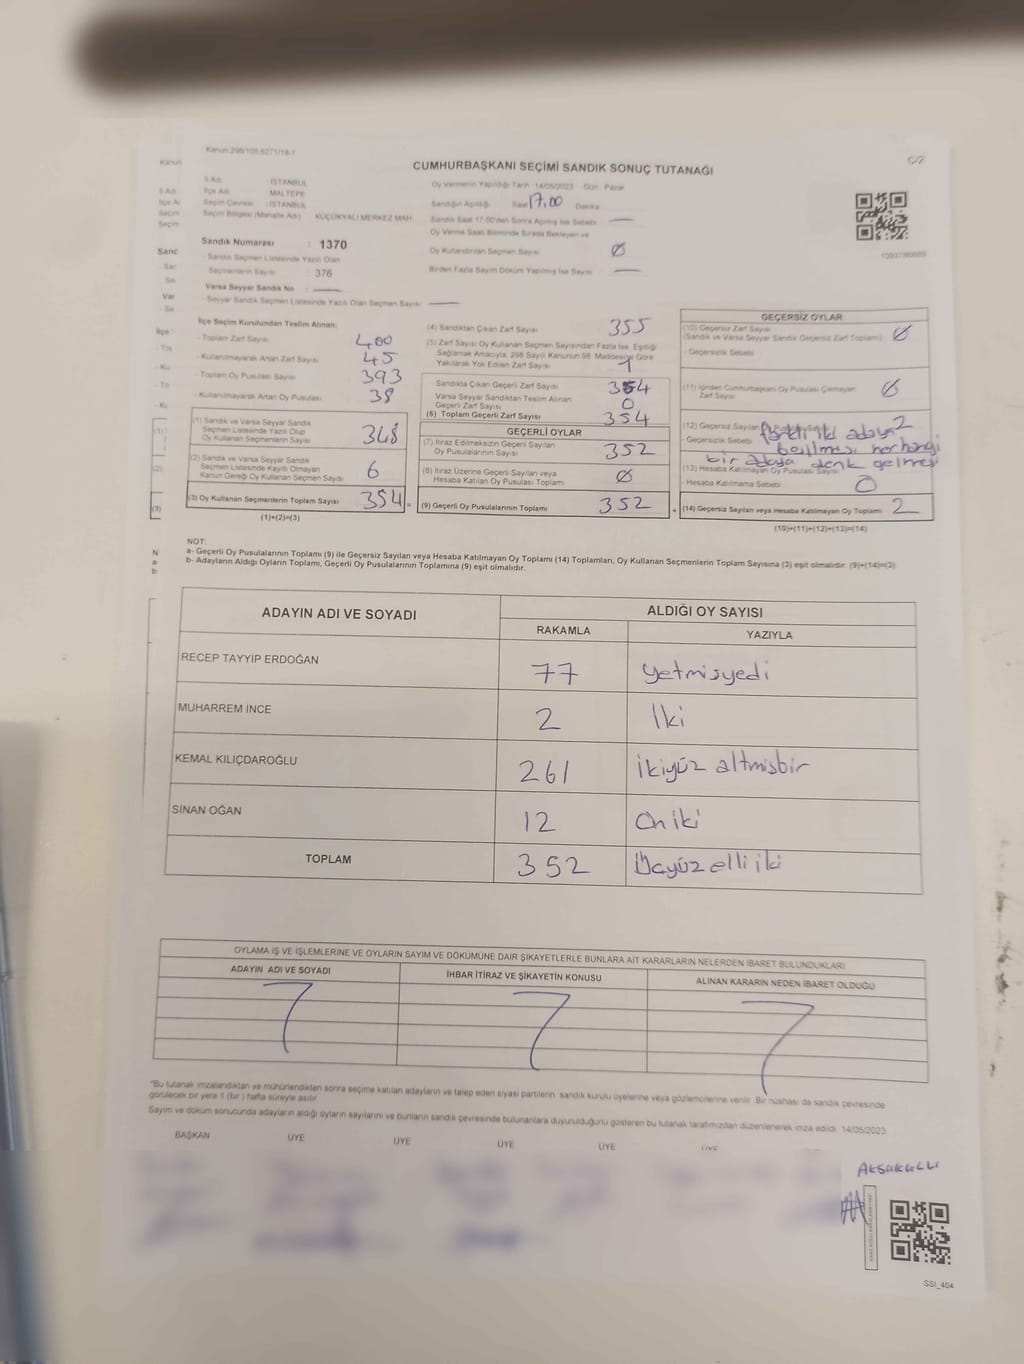 Kanun:298/105,6271/18-1
CUMHURBAŞKANI SEÇİMİ SANDIK SONUÇ TUTANAĞI
İl Adı : İSTANBUL
İlçe Adı : MALTEPE
Seçim Çevresi : İSTANBUL
Seçim Bölgesi (Mahalle Adı) : KÜÇÜKYALI MERKEZ MAH
Sandık Numarası : 1370
- Sandık Seçmen Listesinde Yazılı Olan
Seçmenlerin Sayısı : 376
Varsa Seyyar Sandık No :
- Seyyar Sandık Seçmen Listesinde Yazılı Olan Seçmen Sayısı :
Oy Vermenin Yapıldığı Tarih : 14/05/2023 Gün : Pazar
Sandığın Açıldığı Saat 17.00 Dakika
Sandık Saat 17.00'den Sonra Açılmış İse Sebebi
Oy Verme Saati Bitiminde Sırada Bekleyen ve
Oy Kullandırılan Seçmen Sayısı 0
Birden Fazla Sayım Döküm Yapılmış İse Sayısı
İlçe Seçim Kurulundan Teslim Alınan:
- Toplam Zarf Sayısı 400
- Kullanılmayarak Artan Zarf Sayısı 45
- Toplam Oy Pusulası Sayısı 393
- Kullanılmayarak Artan Oy Pusulası 38
(1) Sandık ve Varsa Seyyar Sandık
Seçmen Listesinde Yazılı Olup
Oy Kullanan Seçmenlerin Sayısı 348
(2) Sandık ve Varsa Seyyar Sandık
Seçmen Listesinde Kayıtlı Olmayan
Kanun Gereği Oy Kullanan Seçmen Sayısı 6
(3) Oy Kullanan Seçmenlerin Toplam Sayısı 354
(1)+(2)=(3)
(4) Sandıktan Çıkan Zarf Sayısı 355
(5) Zarf Sayısı Oy Kullanan Seçmen Sayısından Fazla İse, Eşitliği
Sağlamak Amacıyla, 298 Sayılı Kanunun 98. Maddesine Göre
Yakılarak Yok Edilen Zarf Sayısı 1
Sandıkta Çıkan Geçerli Zarf Sayısı 354
Varsa Seyyar Sandıktan Teslim Alınan
Geçerli Zarf Sayısı 0
(6) Toplam Geçerli Zarf Sayısı 354
GEÇERLİ OYLAR
(7) İtiraz Edilmeksizin Geçerli Sayılan
Oy Pusulalarının Sayısı 352
(8) İtiraz Üzerine Geçerli Sayılan veya
Hesaba Katılan Oy Pusulası Toplamı 0
(9) Geçerli Oy Pusulalarının Toplamı 352
GEÇERSİZ OYLAR
(10) Geçersiz Zarf Sayısı
(Sandık ve Varsa Seyyar Sandık Geçersiz Zarf Toplamı) 0
- Geçersizlik Sebebi
(11) İçinden Cumhurbaşkanı Oy Pusulası Çıkmayan
Zarf Sayısı 0
(12) Geçersiz Sayılan Oy Pusulası Sayısı 2
- Geçersizlik Sebebi farklı iki adaya
basılması herhangi
bir adaya denk gelmeyi
(13) Hesaba Katılmayan Oy Pusulası Sayısı
- Hesaba Katılmama Sebebi 0
(14) Geçersiz Sayılan veya Hesaba Katılmayan Oy Toplamı 2
(10)+(11)+(12)+(13)=(14)
NOT:
a- Geçerli Oy Pusulalarının Toplamı (9) ile Geçersiz Sayılan veya Hesaba Katılmayan Oy Toplamı (14) Toplamları, Oy Kullanan Seçmenlerin Toplam Sayısına (3) eşit olmalıdır. (9)+(14)=(3)
b- Adayların Aldığı Oyların Toplamı, Geçerli Oy Pusulalarının Toplamına (9) eşit olmalıdır.
ADAYIN ADI VE SOYADI ALDIĞI OY SAYISI
RAKAMLA YAZIYLA
RECEP TAYYİP ERDOĞAN 77 yetmişyedi
MUHARREM İNCE 2 İki
KEMAL KILIÇDAROĞLU 261 ikiyüz altmışbir
SİNAN OĞAN 12 Oniki
TOPLAM 352 Üçyüz elli iki
OYLAMA İŞ VE İŞLEMLERİNE VE OYLARIN SAYIM VE DÖKÜMÜNE DAİR ŞİKAYETLERLE BUNLARA AİT KARARLARIN NELERDEN İBARET BULUNDUKLARI
ADAYIN ADI VE SOYADI İHBAR İTİRAZ VE ŞİKAYETİN KONUSU ALINAN KARARIN NEDEN İBARET OLDUĞU
*Bu tutanak imzalandıktan ve mühürlendikten sonra seçime katılan adayların ve talep eden siyasi partilerin sandık kurulu üyelerine veya gözlemcilerine verilir. Bir nüshası da sandık çevresinde
görülecek bir yere 1 (bir) hafta süreyle asılır.
Sayım ve döküm sonucunda adayların aldığı oyların sayılarını ve bunların sandık çevresinde bulunanlara duyurulduğunu gösteren bu tutanak tarafımızdan düzenlenerek imza edildi. 14/05/2023
BAŞKAN ÜYE ÜYE ÜYE ÜYE ÜYE
SSI_404